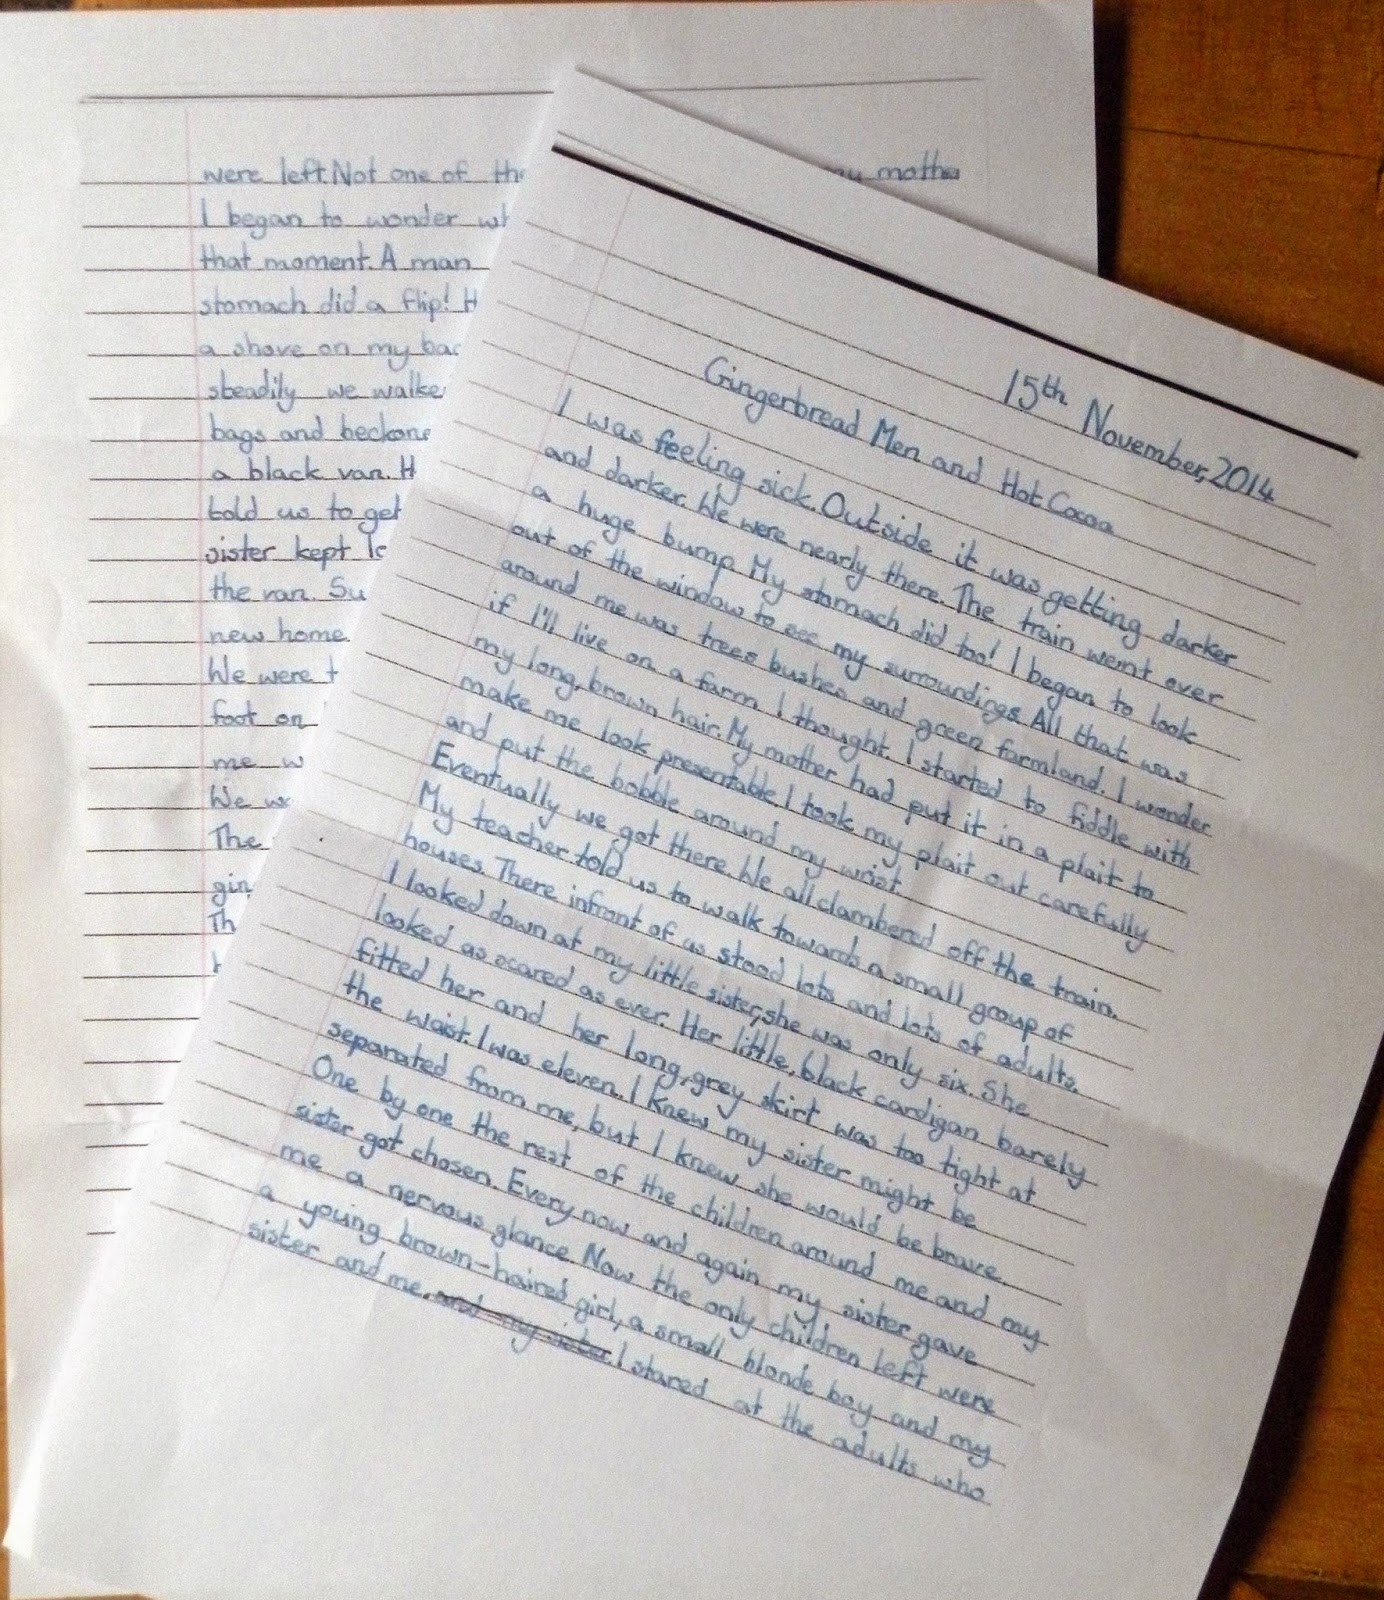 15th November, 2014
Gingerbread Men and Hot Cocoa
I was feeling sick. Outside it was getting darker
and darker. We were nearly there. The train went over
a huge bump. My stomach did too! I began to look
out of the window to see my surroundings. All that was
around me was trees bushes and green farmland. I wonder
if I'll live on a farm I thought. I started to fiddle with
my long, brown hair. My mother had put it in a plait to
make me look presentable. I took my plait out carefully
and put the bobble around my wrist.
Eventually we got there. We all clambered off the train.
My teacher told us to walk towards a small group of
houses. There infront of us stood lots and lots of adults.
I looked down at my little sister, she was only six. She
looked as scared as ever. Her little, black cardigan barely
fitted her and her long, grey skirt was too tight at
the waist. I was eleven. I knew my sister might be
separated from me, but I knew she would be brave.
One by one the rest of the children around me and my
sister got chosen. Every now and again my sister gave
me a nervous glance. Now the only children left were
a young brown-haired girl, a small blonde boy and my
sister and me. and my sister. I stared at the adults who
were left. Not one of mother
I began to wonder
that moment. A man
stomach did a flip!
a shove on my
steadily we
bags and
a black van.
told us to get
sister kept
the van.
new home.
We were
foot on
me
We
The